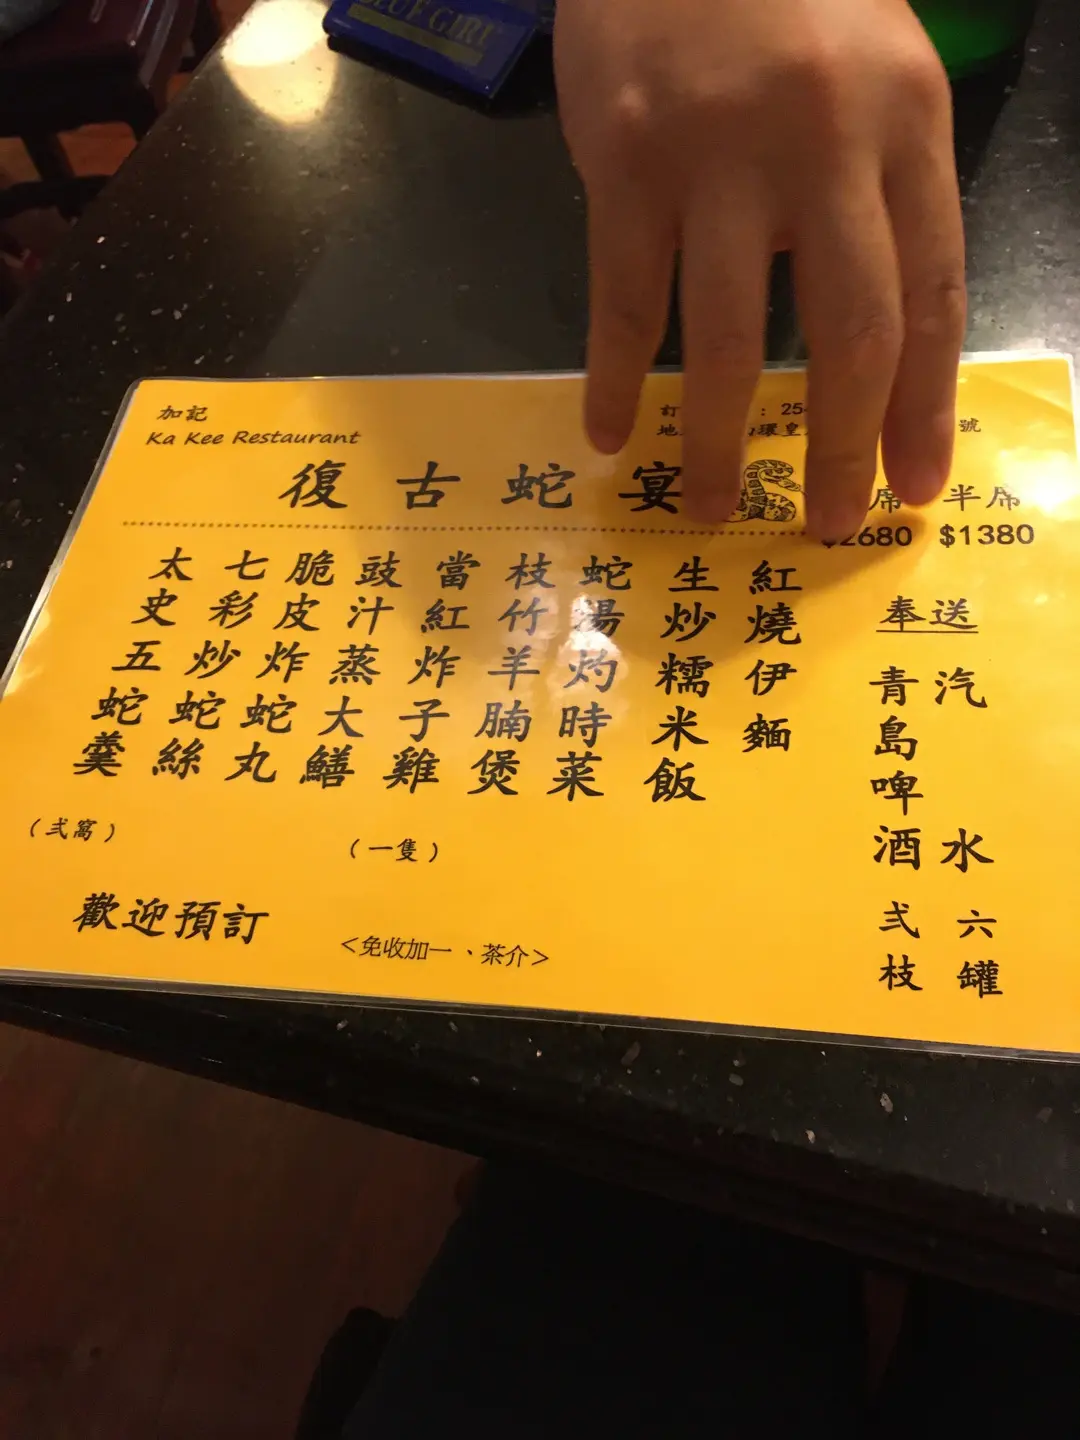 BLUE GIRL
加記
Ka Kee Restaurant
訂 : 25
地 環皇 號
復古蛇宴
席 半席
$2680 $1380
太史五蛇羹
(弍窩)
七彩炒蛇絲
脆皮炸蛇丸
豉汁蒸大鱔
當紅炸子雞
(一隻)
枝竹羊腩煲
蛇湯灼時菜
生炒糯米飯
紅燒伊麵
奉送
青島啤酒弍枝
汽水六罐
歡迎預訂
<免收加一、茶介>